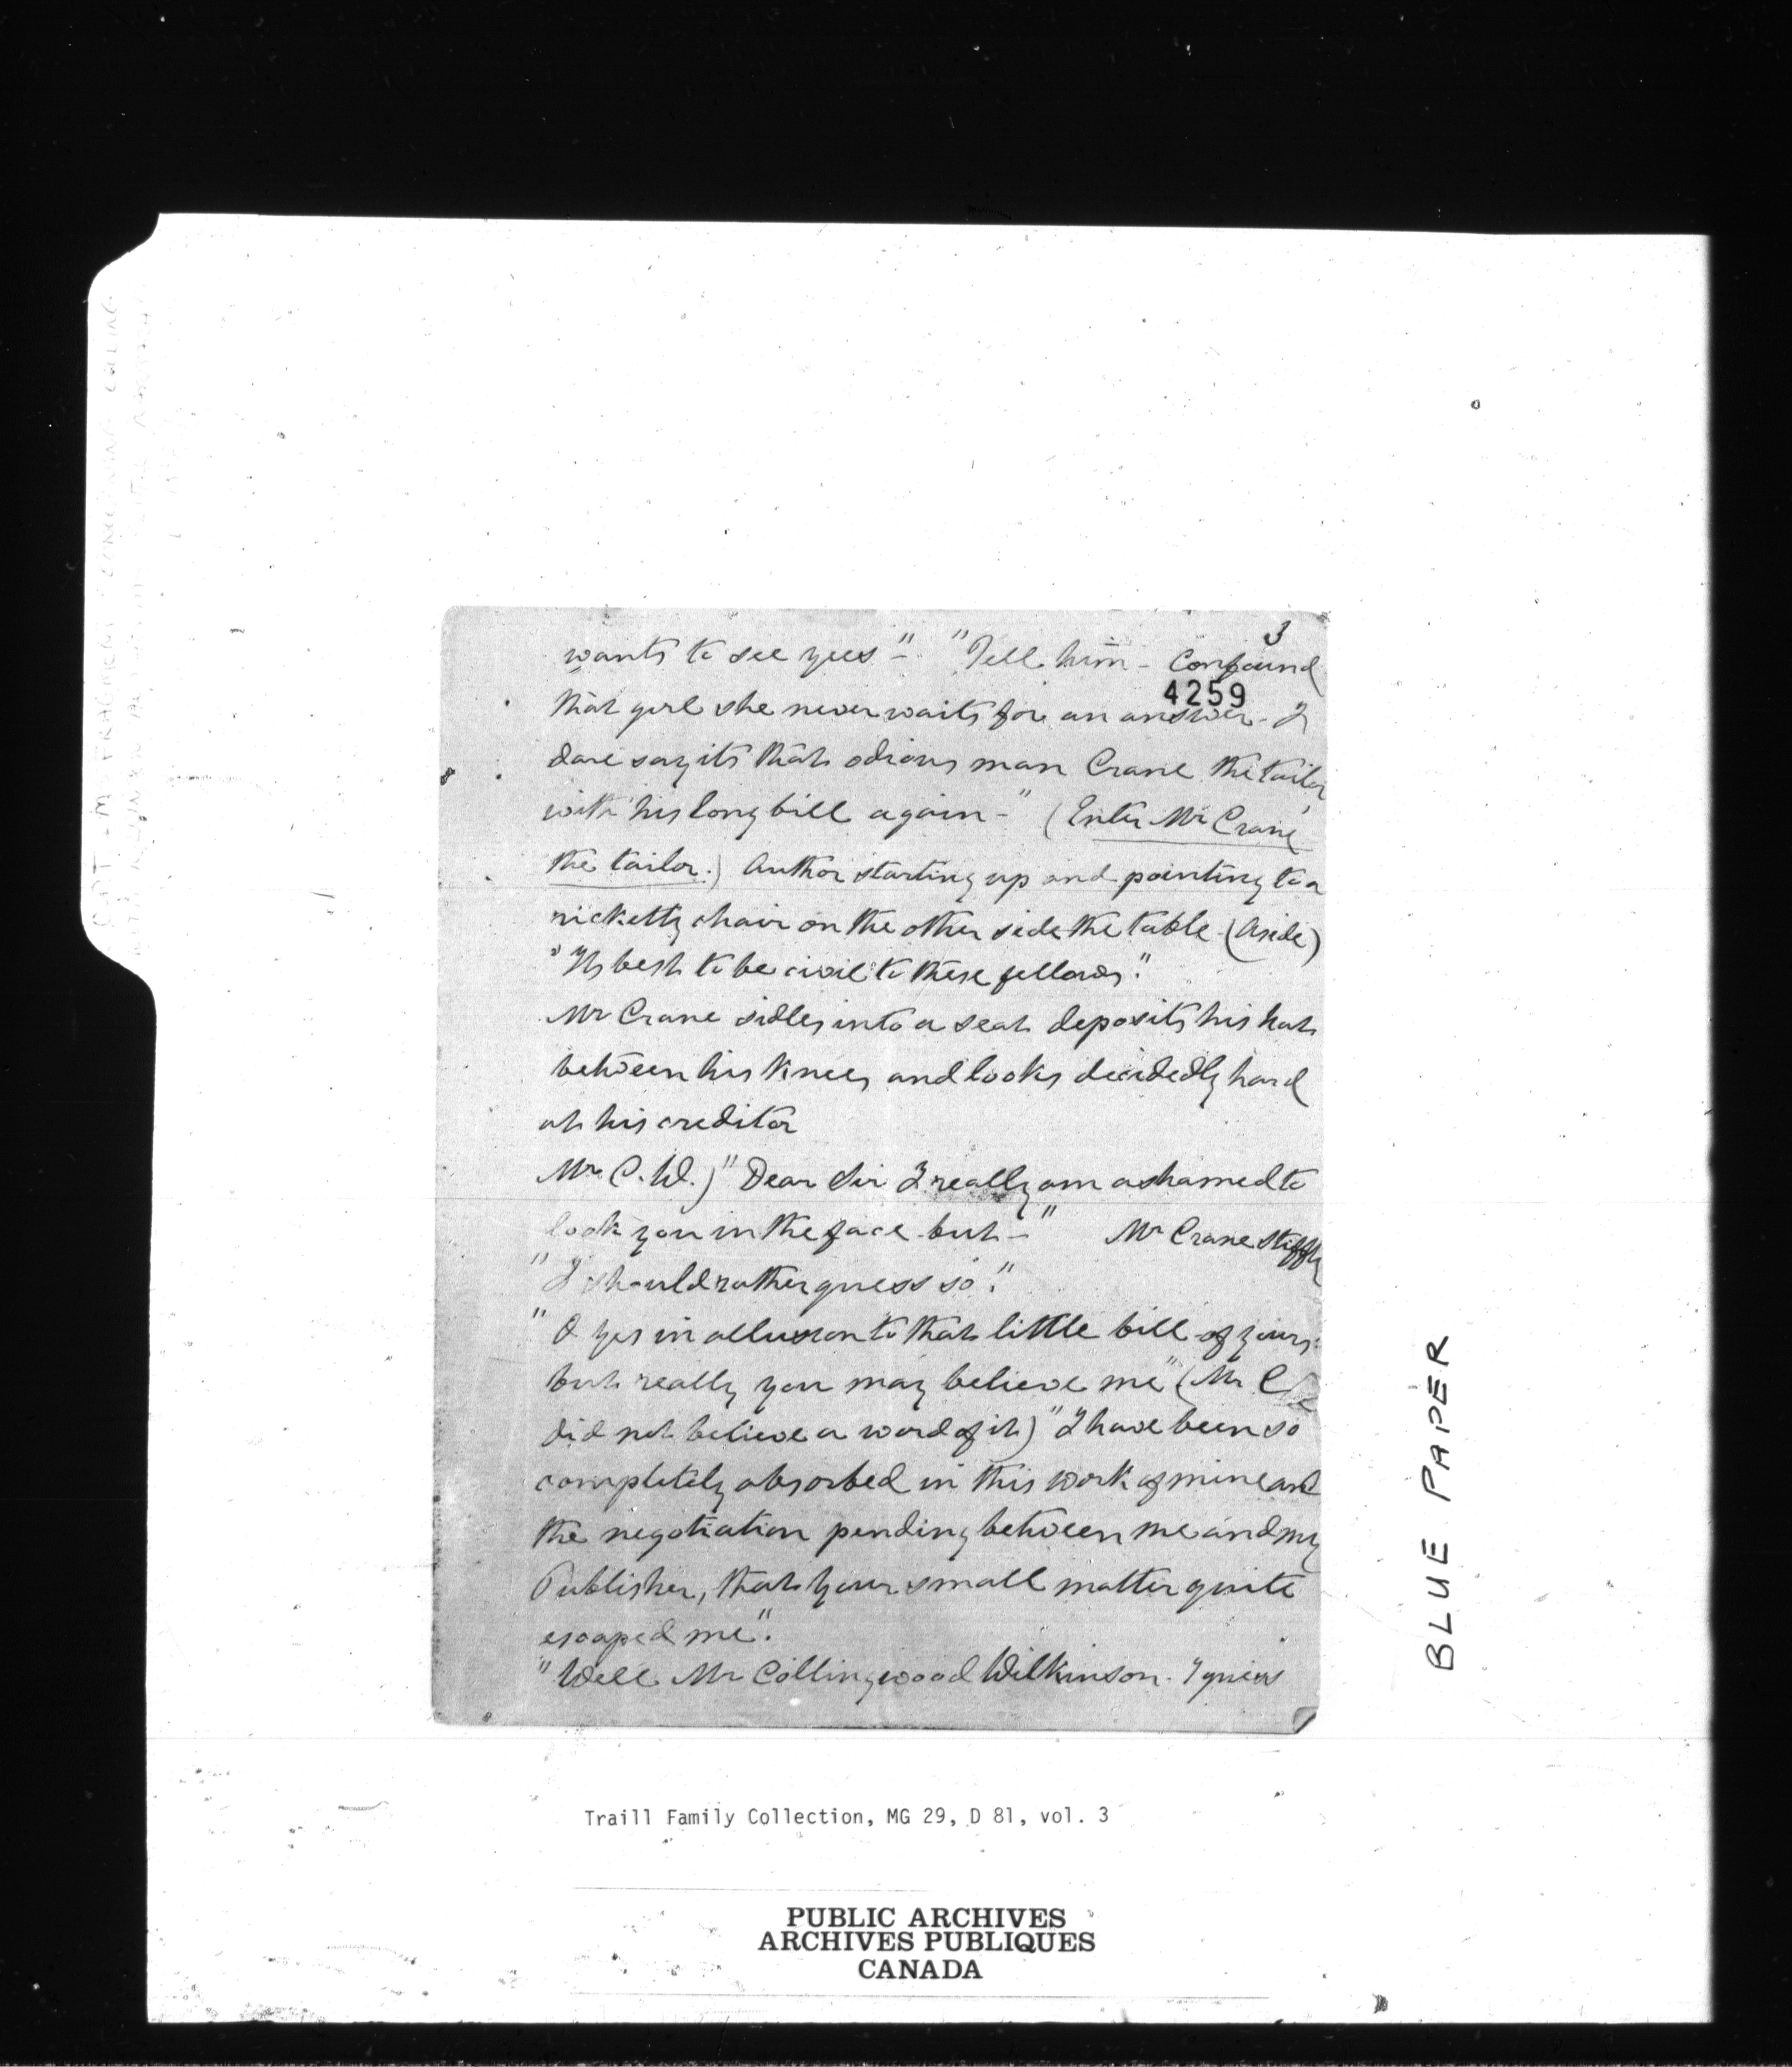 3
wants to see yees" - "Tell him - Confound
4259
that girl she never waits for an answer - I
dare say its that odious man Crane the tailor
with his long bill again - " (Enter Mr Crane
the tailor.) Author starting up and pointing to a
ricketty chair on the other side the table - (Aside)
"Its best to be civil to these fellows."
Mr Crane sidles into a seat deposits his hat
between his knees and looks decidedly hard
at his creditor
Mr C. W.) "Dear Sir I really am ashamed to
look you in the face but - " Mr Crane stiffly
"I should rather guess so."
"O yes in allusion to that little bill of yours.
but really you may believe me" (Mr C
did not believe a word of it) "I have been so
completely absorbed in this work of mine and
the negotiation pending between me and my
Publisher, that your small matter quite
escaped me".
"Well Mr Collingwood Wilkinson. I guess
BLUE PAPER
Traill Family Collection, MG 29, D 81, vol. 3
PUBLIC ARCHIVES
ARCHIVES PUBLIQUES
CANADA